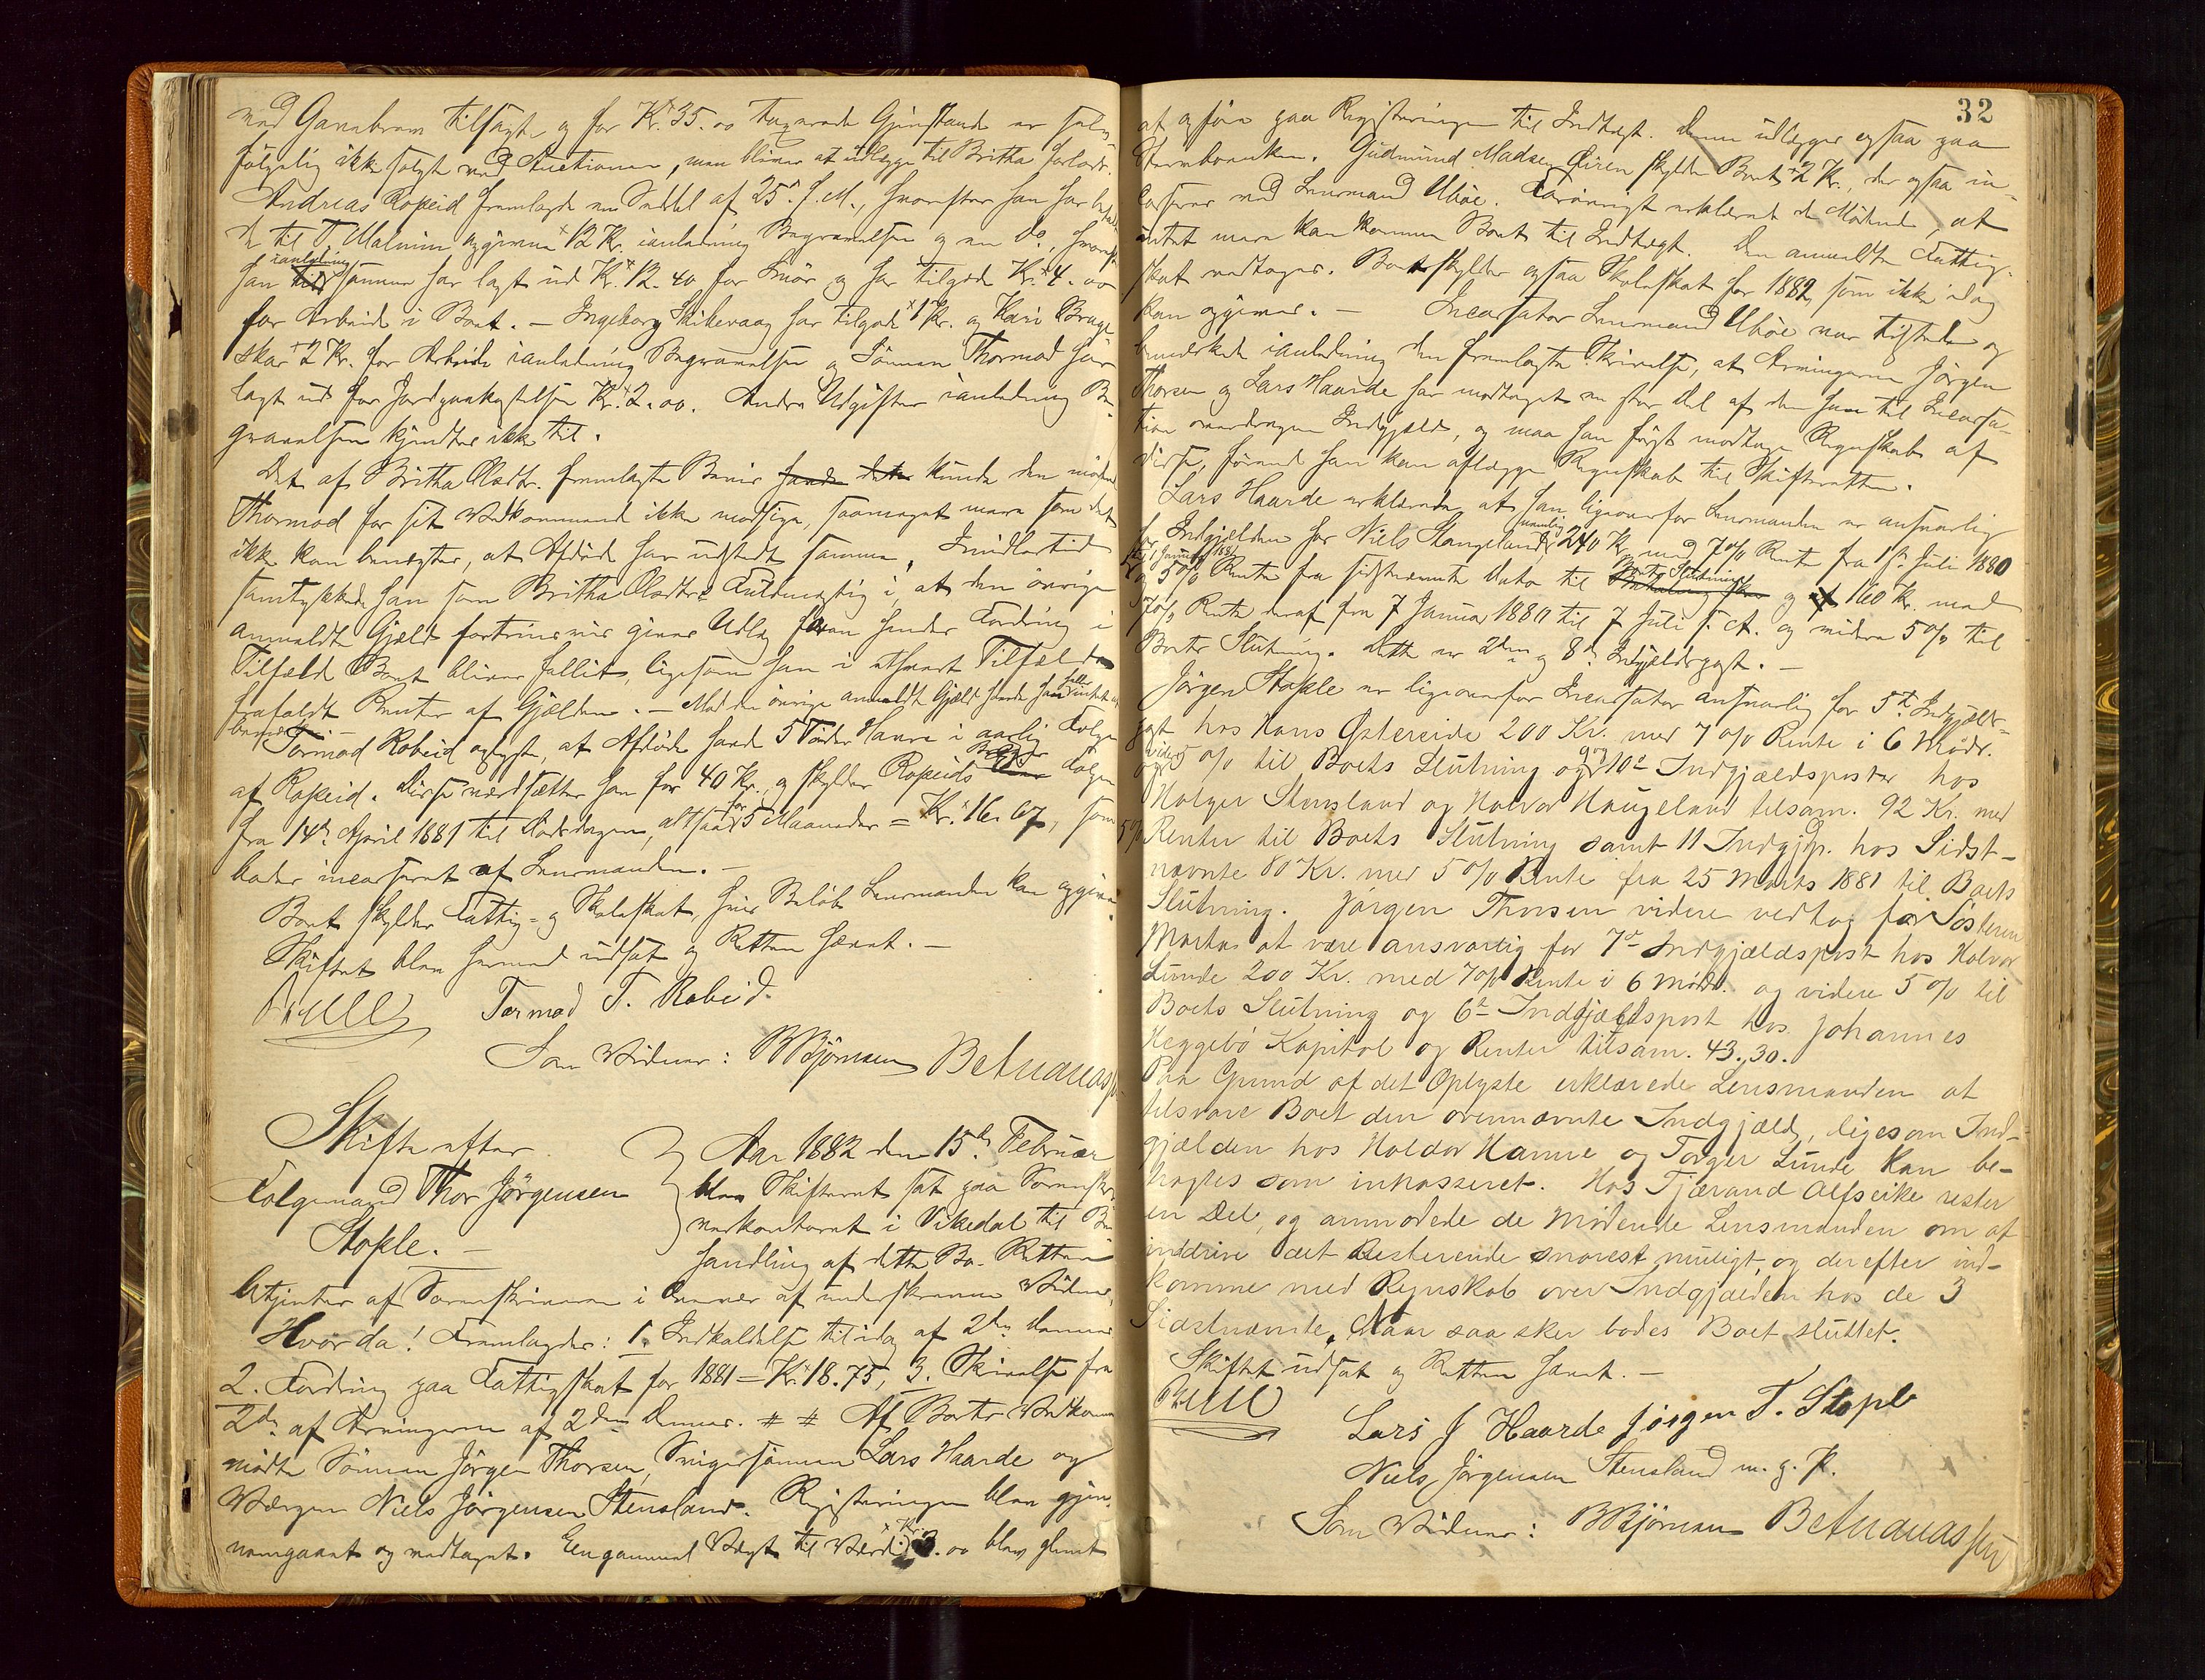 med Garnebrom tilsagte og for Kr. 35.00 Gjenstande er
følgelig ikke solgte ved Auctionen, men bliver at udlægge til Britha
Andreas Ropeid fremlagde en Seddel af 25 f. M., hvorefter han har betalt
til T. Malmin 12 Kr. i anledning Begravelsen og en do, hvorefter
han ianledning samme har lagt ud Kr. 12.40 for Smør og har tilgode Kr. 4.00
for Arbeide i Boet. – Ingeborg Skikevaag har tilgode 1 Kr. og Kari Brage
skar 2 Kr. for Arbeide ianledning Begravelsen og Sønnen Thormod har
lagt ud for Jordpaakastelsen Kr. 2.00. Andre Udgifter ianledning Be
gravelsen kjendtes ikke til.
Det af Britha Olsdtr. fremlagte Bevis kunde den mødende
Thormod for sit Vedkommende ikke modsige, saameget mere som det
ikke kan benægtes, at Afdøde har udstedt samme. Imidlertid
samtykkede han som Britha Olsdtrs Fuldmægtig i, at den øvrige
anmeldte Gjæld fortrinsvis gives Udlæg foran hendes Fordring i
Tilfælde Boet bliver fallit, ligesom han i ethvert Tilfælde
frafaldt Renter af Gjælden. – Mod den øvrige anmeldte Gjæld havde han heller intet at
bemærke.
Tormod Robeid oplyste, at Afdøde havde 5 Tønder Havre i aarlig Folge
af Ropeid. Disse værdsætter han for 40 Kr., og skylder Ropeids Bruger Folgen
fra 14de April 1881 til Dødsdagen, altsaa for 5 Maaneder = Kr. 16.67, som
bedes incasseret af Lensmanden. –
Boet skylder Fattig- og Skoleskat, hvis Beløb Lensmanden kan opgive.
Skiftet blev hermed udsat og Retten hævet. –
Tormod T. Robeid.
Som Vidner: BBjørnsen BeAndreassen
Skifte efter
Folgemand Thor Jörgensen
Stople. –
Aar 1882 den 15de Februar
blev Skifteret sat paa Sorenskri
verkontoret i Vikedal til Be
handling af dette Bo. Retten
betjentes af Sorenskriveren i Overvær af underskrevne Vidner.
Hvorda! Fremlagdes: 1. Indkaldelse til idag af 2den dennes
2. Fordring paa Fattigskat for 1881 = Kr. 18.75, 3. Skrivelse fra
2de af Arvingerne af 2den dennes. # # Af Boets Vedkom
mødte Sønnen Jörgen Thorsen, Svigersønnen Lars Haarde og
Værgen Niels Jörgensen Stensland. Registeringen blev gjen-
nemgaaet og vedtaget. En gammel Vægt til Værdi Kr. 3.00 blev glemt
32
at opføre paa Registeringen til Indtægt. Denne udlægges ogsaa paa
Stervboenken. Gudmund Madsen Øiren skylder Boet 2 Kr., der ogsaa in-
casseres ved Lensmand Ubøe. Forøvrigt erklærede de Mødende, at
intet mere kan komme Boet til Indtægt. Den anmeldte Fattig-
skat vedtages. Boet skylder ogsaa Skoleskat for 1882, som ikke idag
kan opgives. – Incassator Lensmand Ubøe var tilstede og
bemærkede ianledning den fremlagte Skrivelse, at Arvingerne Jörgen
Thorsen og Lars Haarde har modtaget en stor Del af den ham til Incassa-
tion overdragne Indgjæld, og maa han først modtage Regnskab af
disse, førend han kan aflægge Regnskab til Skifteretten.
Lars Haarde erklærede, at han ligeoverfor Lensmanden er ansvarlig
for Indgjælden hos Niels Stangeland, nemlig 240 Kr. med 7% Rente fra 1ste Juli 1880
til 1 Januar 1881 og 5% Rente fra sidstnævnte Dato til Boets Slutning og 160 Kr. med
7% Rente deraf fra 7 Januar 1880 til 7 Juli s. A. og videre 5% til
Boets Slutning. Dette er 2den og 8de Indgjældspost. –
Jörgen Stople er ligeoverfor Incassator ansvarlig for 5te Indgjælds-
post hos Hans Östereide 200 Kr. med 7% Rente i 6 Mdr.
og videre 5% til Boets Slutning og 9de og 10de Indgjældsposter hos
Holger Stensland og Halvor Haugeland tilsam. 92 Kr. med
5% Renter til Boets Slutning samt 11 Indgjdp. hos Sidst-
nævnte 80 Kr. med 5% Rente fra 25 Marts 1881 til Boets
Slutning. Jörgen Thorsen videre vedtog for Søsteren
Marta at være ansvarlig for 7de Indgjældspost hos Halvor
Lunde 200 Kr. med 7% Rente i 6 Mdr. og videre 5% til
Boets Slutning og 6te Indgjældspost hos Johannes
Heggebö Kapital og Renter tilsam. 43,30.
Paa Grund af det Oplyste erklærede Lensmanden at
tilsvare Boet den ovennævnte Indgjæld, ligesom Ind-
gjælden hos Haldor Hamre og Torger Lunde kan be-
tragtes som inkasseret. Hos Tjærand Alfseike rester
en Del, og anmodede de Mödende Lensmanden om at
inddrive det Resterende snarest muligt, og derefter ind-
komme med Regnskab over Indgjælden hos de 3
Sidstnævnte. Naar saa sker bedes Boet sluttet.
Skiftet udsat og Retten hævet. –
Lars J Haarde Jörgen T. Stople
Niels Jørgensen Stensland m. p. P.
Som Vidner: BBjörnsen BeAndreassen